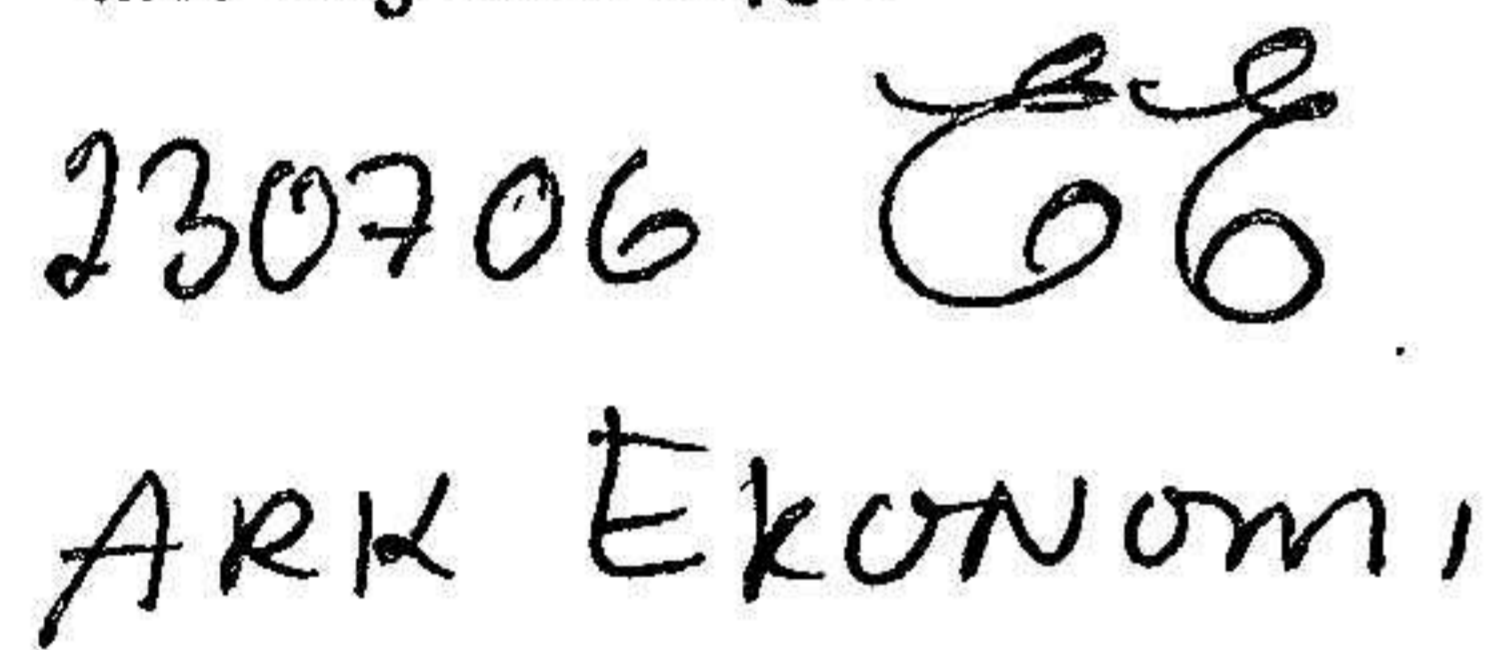 230706
ARK EKONOMI